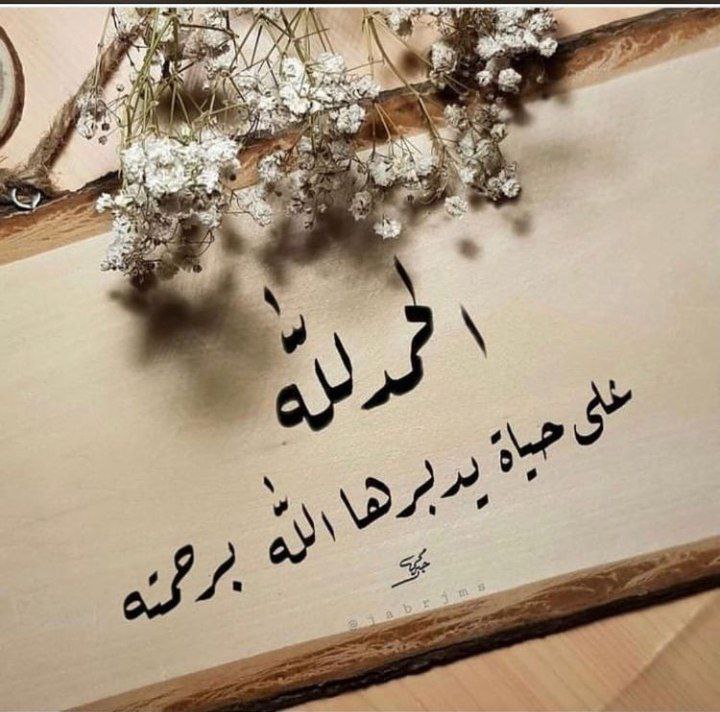 الحمدلله
على حياة يدبرها الله برحمته
@jabrjms